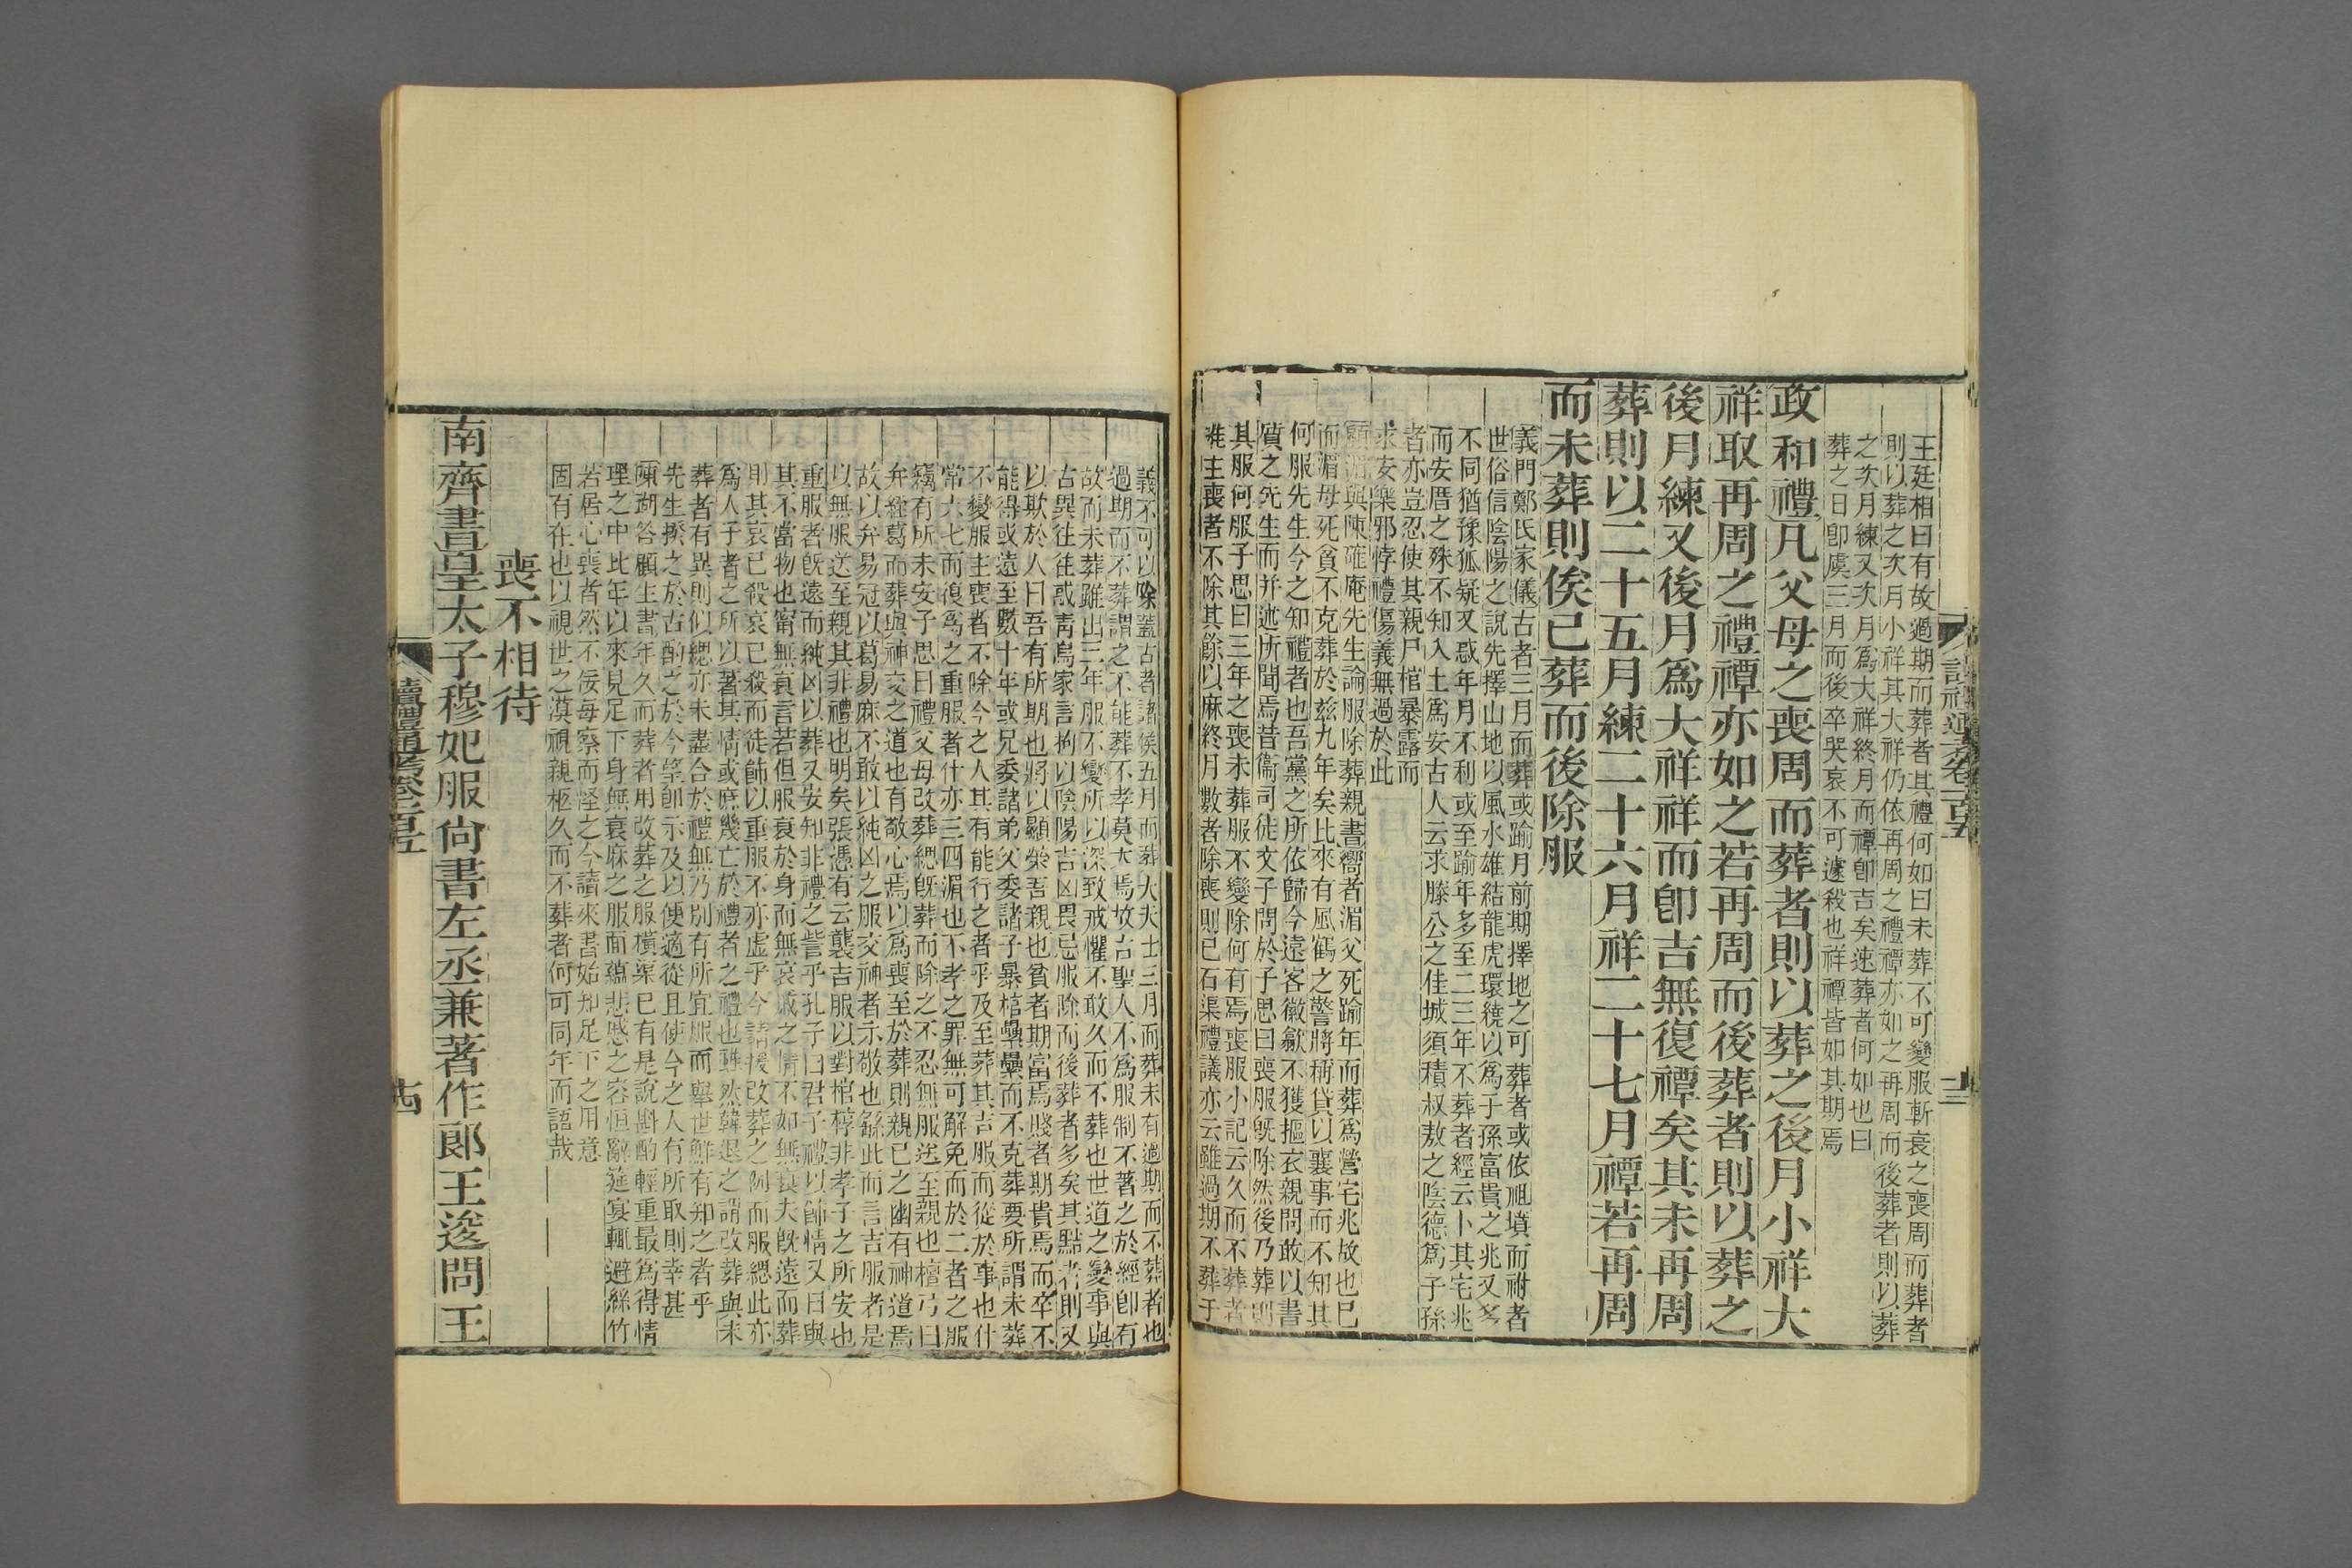 王廷相曰有故過期而葬者其禮何如曰未葬不可變服斬衰之喪周而葬者
則以葬之次月小祥其大祥仍依再周之禮禫亦如之再周而後葬者則以葬
之次月練又次月爲大祥終月而禫卽吉矣速葬者何如也曰
葬之日卽虞三月而後卒哭哀不可遽殺也祥禫皆如其期焉
政和禮凡父母之喪周而葬者則以葬之後月小祥大
祥取再周之禮禫亦如之若再周而後葬者則以葬之
後月練又後月爲大祥祥而卽吉無復禫矣其未再周
葬則以二十五月練二十六月祥二十七月禫若再周
而未葬則俟已葬而後除服
義門鄭氏家儀古者三月而葬或踰月前期擇地之可葬者或依祖墳而祔者
世俗信陰陽之說先擇山地以風水雄結龍虎環繞以爲子孫富貴之兆又多
不同猶豫狐疑又惑年月不利或至踰年多至二三年不葬者經云卜其宅兆
而安厝之殊不知入土爲安古人云求滕公之佳城須積叔敖之陰德爲子孫
者亦豈忍使其親尸棺暴露而
求安樂邪悖禮傷義無過於此
顧湄與陳確庵先生論服除葬親書嚮者湄父死踰年而葬爲營宅兆故也已
而湄母死貧不克葬於玆九年矣比來有風鶴之警將稱貸以襄事而不知其
何服先生今之知禮者也吾黨之所依歸今遠客徽歙不獲摳衣親問敢以書
質之先生而并述所聞焉昔衞司徒文子問於子思曰喪服旣除然後乃葬則
其服何服子思曰三年之喪未葬服不變除何有焉喪服小記云久而不葬者
唯主喪者不除其餘以麻終月數者除喪則已石渠禮議亦云雖過期不葬于
義不可以除蓋古者諸侯五月而葬大夫士三月而葬未有過期而不葬者也
過期而不葬謂之不能葬不孝莫大焉故古聖人不爲服制不著之於經卽有
故而未葬雖出三年服不變所以深致戒懼不敢久而不葬也世道之變事與
古異往往惑靑烏家言拘以陰陽吉凶畏忌服除而後葬者多矣其點者則又
以欺於人曰吾有所期也將以顯榮吾親也貧者期富焉賤者期貴焉而卒不
能得或遠至數十年或兄委諸弟父委諸子暴棺纍纍而不克葬要所謂未葬
不變服主喪者不除今之人其有能行之者乎及至葬其吉服而從於事也什
常六七而復爲之重服者什亦三四湄也不孝之罪無可解免而於二者之服
竊有所未安子思曰禮父母改葬緦旣葬而除之不忍無服送至親也檀弓曰
弁絰葛而葬與神交之道也有敬心焉以爲喪至於葬則親已之幽有神道焉
故以弁易冠以葛易麻不敢以純凶之服交神者示敬也繇此而言吉服者是
以無服送至親其非禮也明矣張憑有云襲吉服以對棺椁非孝子之所安也
重服者旣遠而純凶以葬又安知非禮之訾乎孔子曰君子禮以飾情又曰與
其不當物也甯無衰言若但服衰於身而無哀戚之情不如無衰夫旣遠而葬
則其哀已殺哀已殺而徒飾以重服不亦虛乎今請援改葬之例而服緦此亦
爲人子者之所以著其情或庶幾亡於禮者之禮也雖然韓退之謂改葬與未
葬者有異則似緦亦未盡合於禮無乃別有所宜服而舉世鮮有知之者乎
先生揆之於古酌之於今望卽示及以便適從且使今之人有所取則幸甚
陳瑚答顧生書年久而葬者用改葬之服橫渠已有是說斟酌輕重最爲得情
理之中比年以來見足下身無衰麻之服而蘊悲慼之容恒辭筵宴輒避絲竹
若居心喪者然不佞每察而怪之今讀來書始知足下之用意
固有在也以視世之漠視親柩久而不葬者何可同年而語哉
喪不相待
南齊書皇太子穆妃服尙書左丞兼著作郎王逡問王
讀禮通考卷一百五
十四